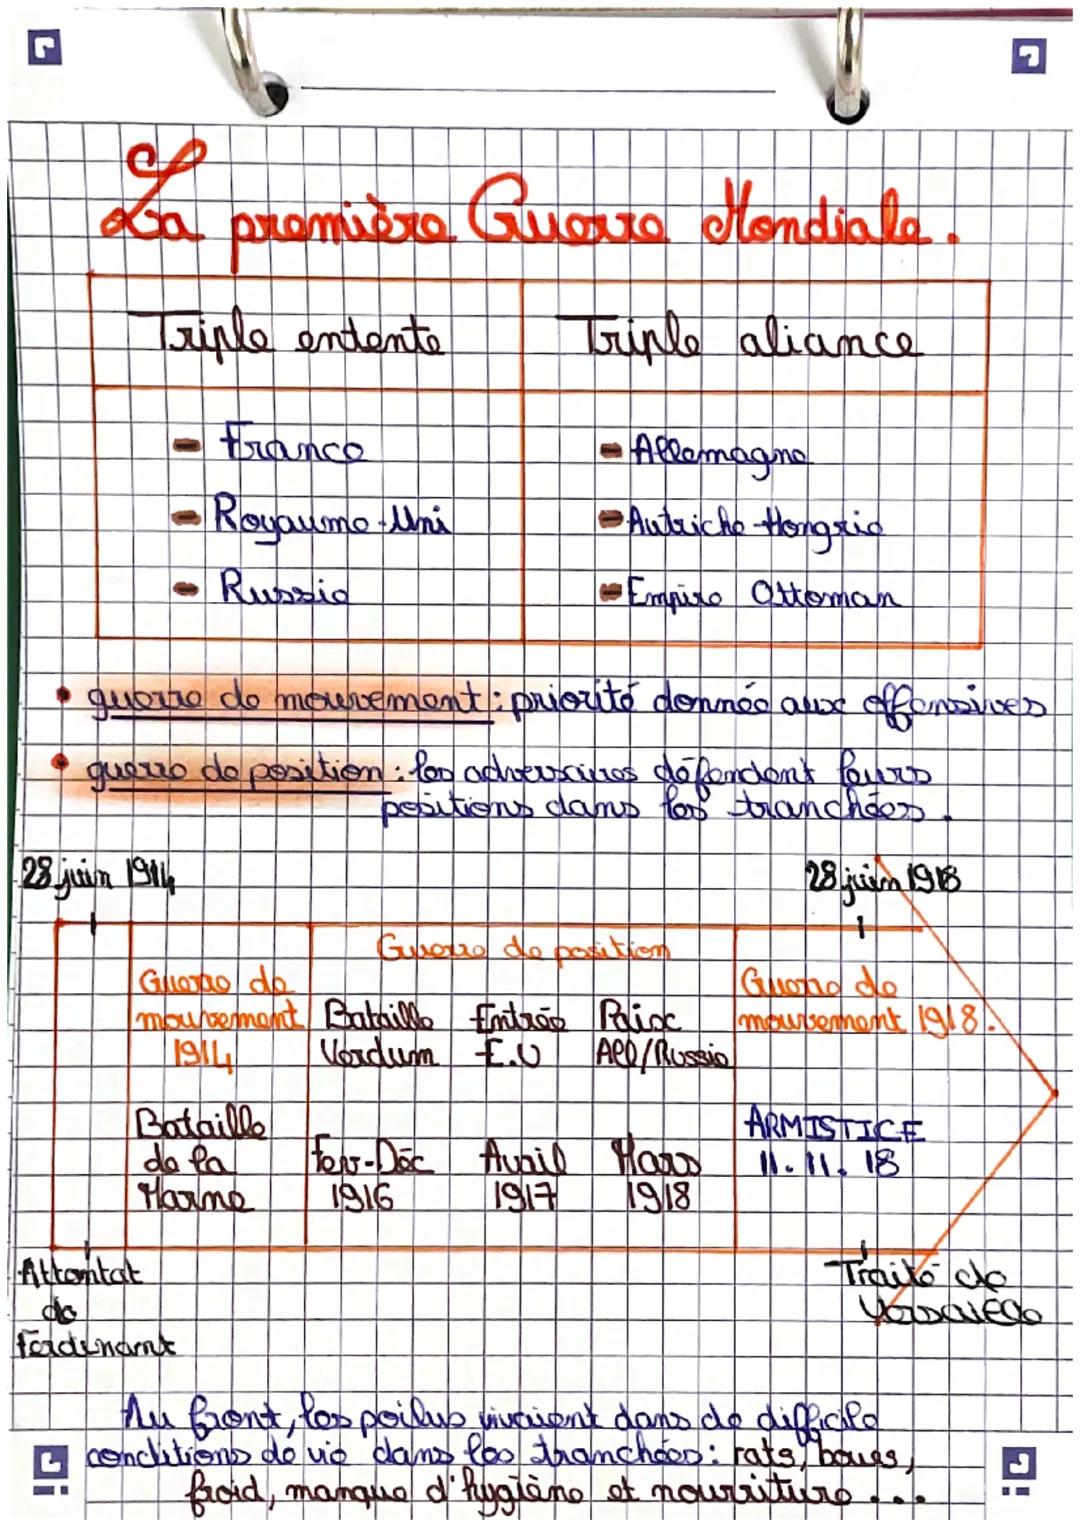 La première Guerre Mondiale.
Triple entente
Triple aliance
- France
- Allemagne
- Royaume-Uni
- Autriche-Hongrie
- Russie
- Empire Ottoman
• guerre de mouvement : priorité donnée aux offensives
• guerre de position : les adversaires défendent leurs
positions dans les tranchées.
28 juin 1914
28 juin 1918
Guerre de position
Guerre de
mouvement
1914
Bataille
Verdum
Entrée
E.U
Paix
All/Russie
Guerre de
mouvement 1918.
Bataille
de la
Marne
Fev-Déc
1916
Avril
1917
Mars
1918
ARMISTICE
11.11.18
Attentat
de
Ferdinant
Traité de
Versailles
Au front, les poilus vivaient dans de difficile
conditions de vie dans les tranchées : rats, boues,
froid, manque d'hygiène et nourriture...